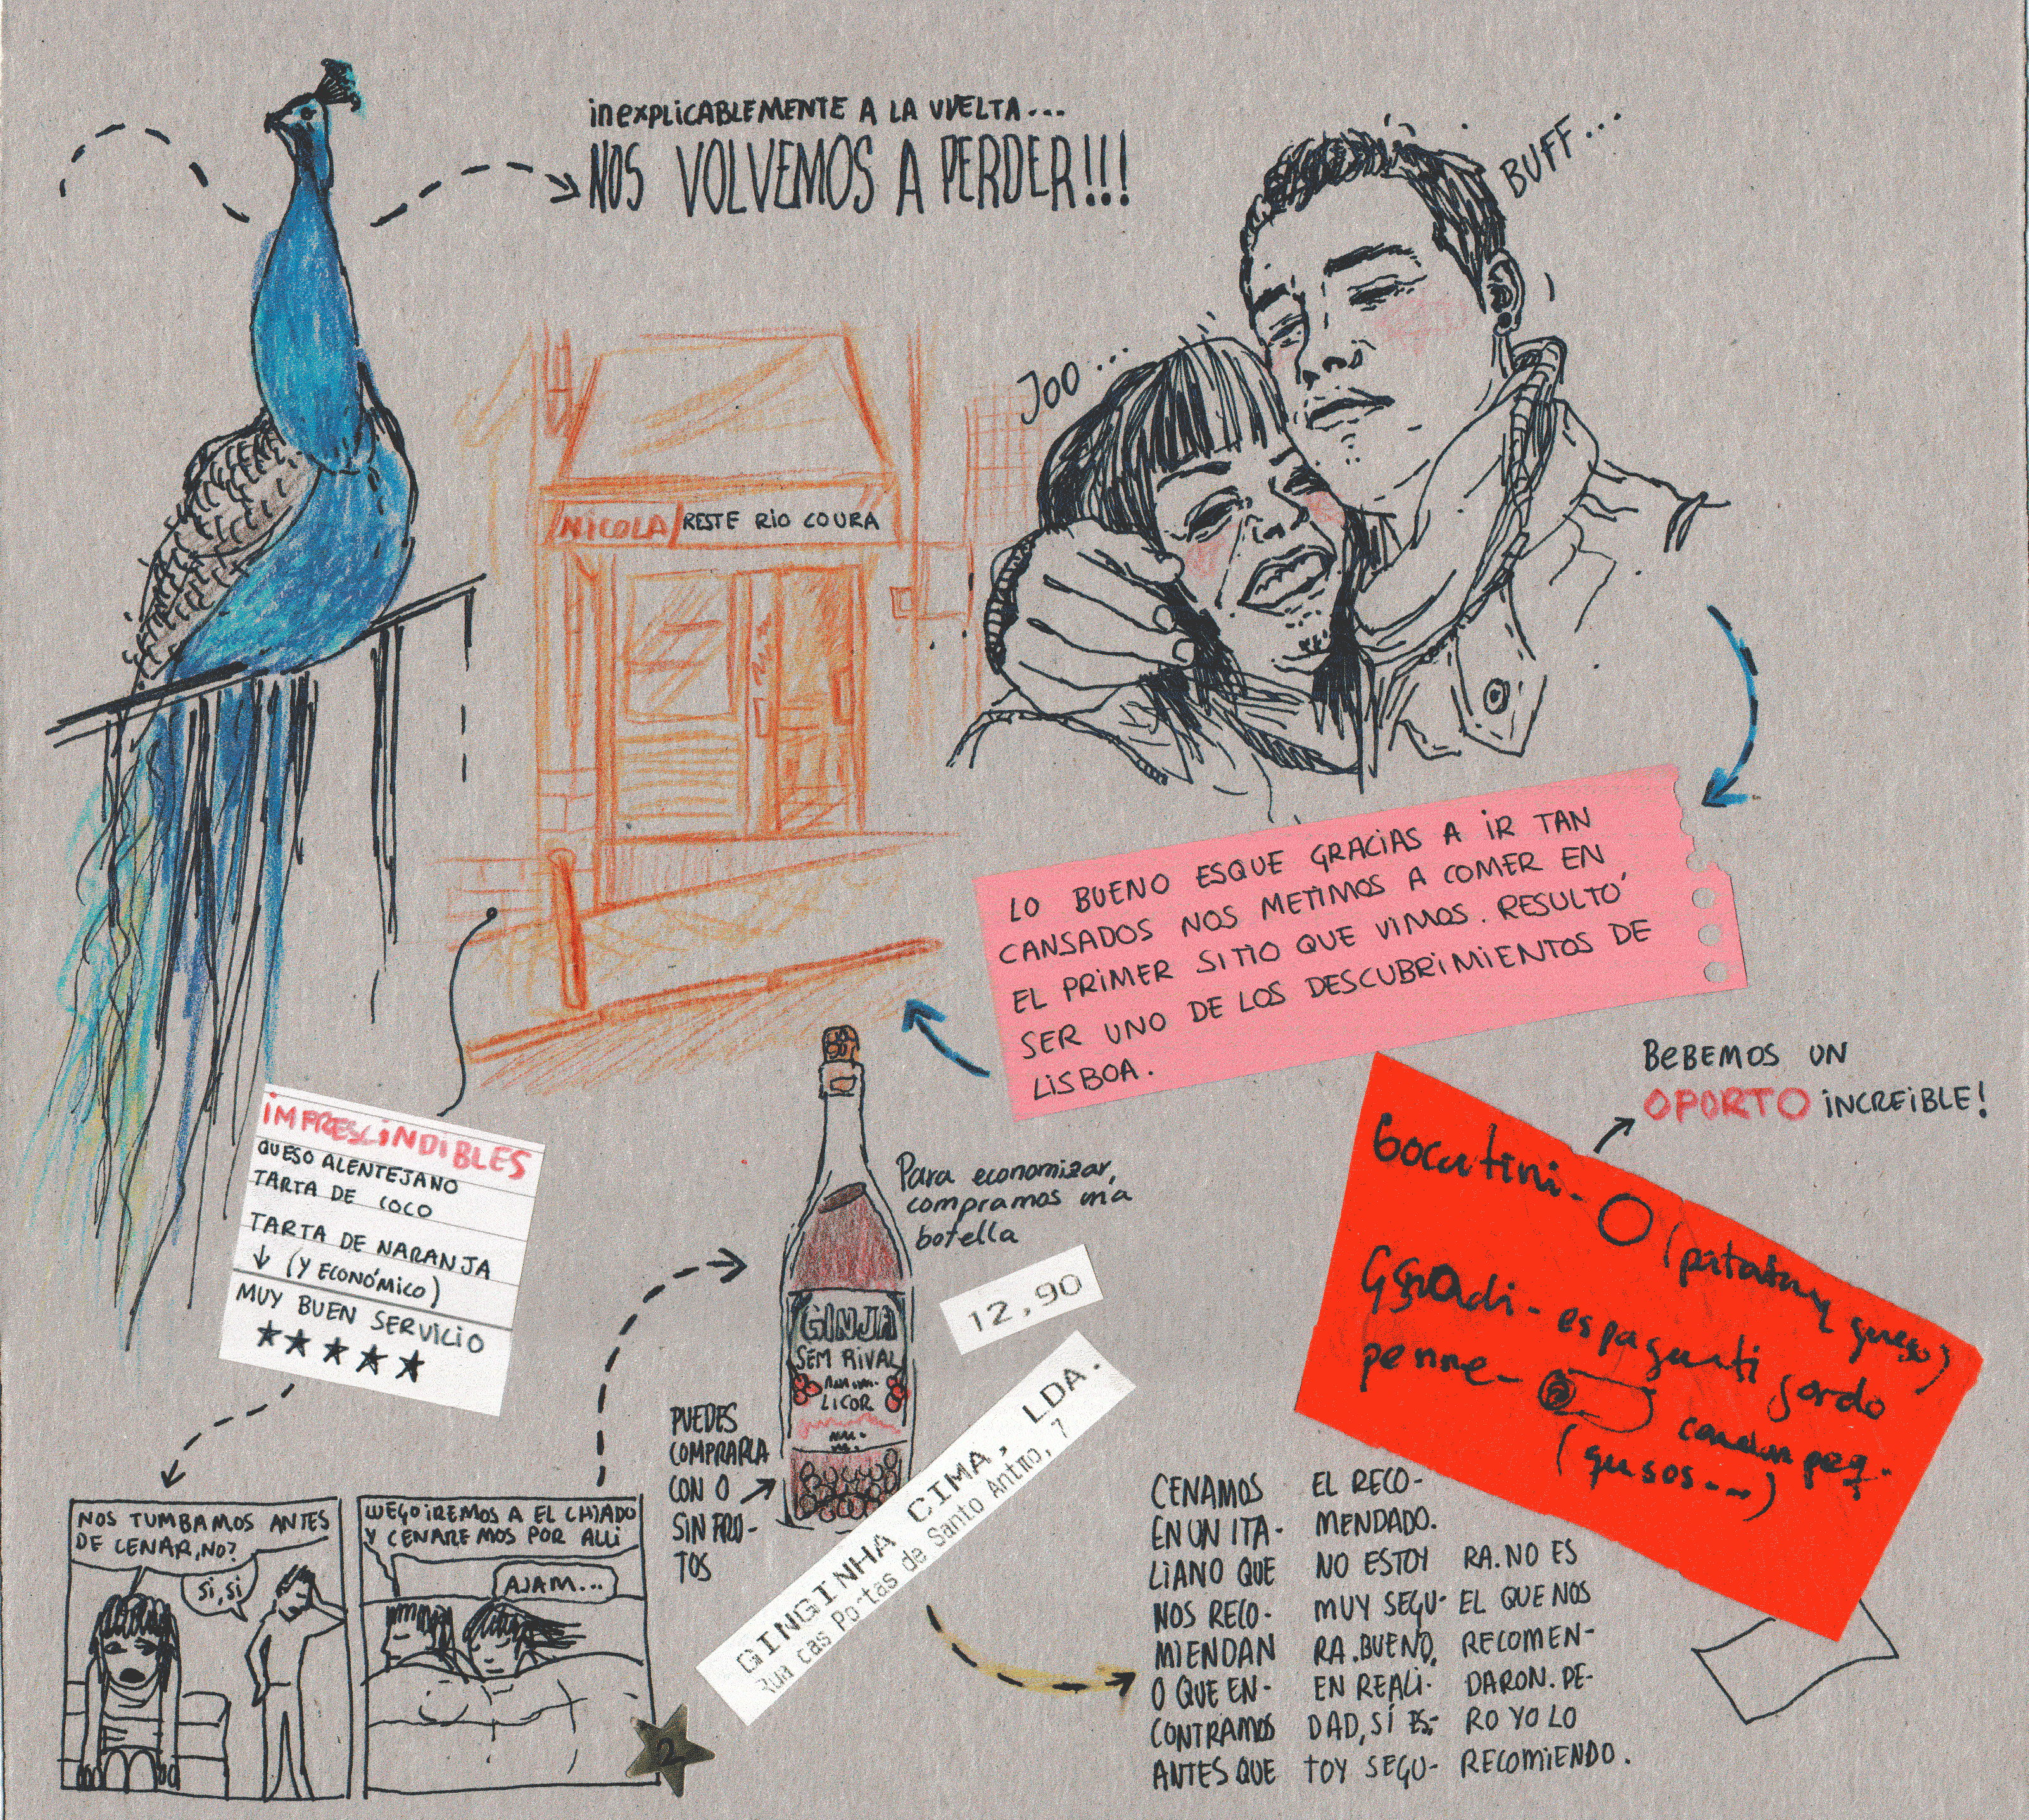 inexplicablemente A LA VUELTA...
NOS VOLVEMOS A PERDER!!!
BUFF...
JOO...
NICOLA/RESTE RIO COURA
LO BUENO ESQUE GRACIAS A IR TAN
CANSADOS NOS METIMOS A COMER EN
EL PRIMER SITIO QUE VIMOS. RESULTÓ
SER UNO DE LOS DESCUBRIMIENTOS DE
LISBOA.
BEBEMOS UN
OPORTO INCREIBLE!
IMPRESCINDIBLES
QUESO ALENTEJANO
TARTA DE COCO
TARTA DE NARANJA
↓ (Y ECONÓMICO)
MUY BUEN SERVICIO
★★★★★
Para economizar,
compramos una
botella
12,90
GINJA
SEM RIVAL
LICOR
PUEDES
COMPRARLA
CON O
SIN FRU-
TOS
GINGINHA CIMA, LDA.
Rua das Portas de Santo Antão, 7
espaguetti gordo
penne-
(quesos--)
NOS TUMBAMOS ANTES
DE CENAR, NO?
Si, si
LUEGO IREMOS A EL CHIADO
Y CENAREMOS POR ALLI
AJAM...
2
CENAMOS
EN UN ITA-
LIANO QUE
NOS RECO-
MIENDAN
O QUE EN-
CONTRAMOS
ANTES QUE
EL RECO-
MENDADO.
NO ESTOY
MUY SEGU-
RA. BUENO,
EN REALI-
DAD, SÍ ES-
TOY SEGU-
RA. NO ES
EL QUE NOS
RECOMEN-
DARON. PE-
RO YO LO
RECOMIENDO.